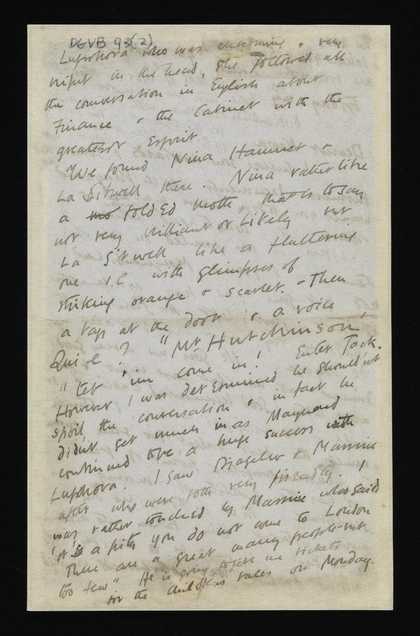 DGVB 93(2)
Lupokova who was charming & very
bright in the head, she followed all
the conversation in English about
Finance & the Cabinet with the
greatest Esprit
We found Nina Hamnet &
La Sitwell there. Nina rather like
a folded moth, that is to say
not very brilliant or likely but
La Sitwell like a fluttering
one i.e. with glimpses of
striking orange & scarlet. – Then
a tap at the door & a voice
Qui e? "Mr Hutchinson"
"Let 'im come in! Enter Jack.
However I was determined he should not
spoil the conversation & in fact he
didnt get much in as Maynard
continued to be a huge success with
Lupokova. I saw Diagelev & Massine
after who were both very friendly. I
was rather touched by Massine who said
'it is a pity you do not come to London
There are a great many people but
too few" He is going to give me tickets
for the Children's tales on Monday.